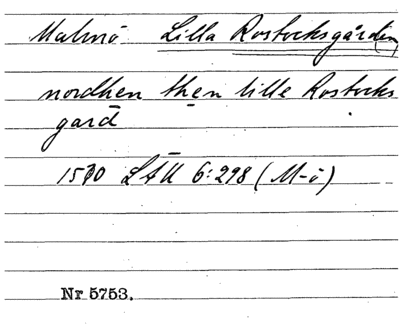 Malmö Lilla Rostocksgård(en)
nordhen then lille Rostocks
gard
1570 LÄU 6:298 (M-ö)
Nr 5753.